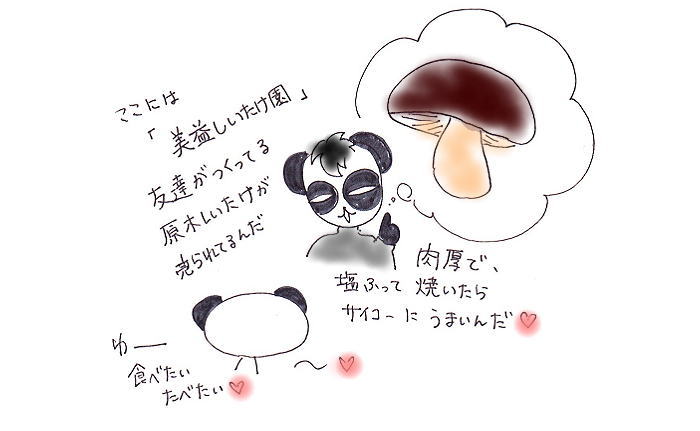 ここには
「美益しいたけ園」
友達がつくってる
原木しいたけが
売られてるんだ
肉厚で、
塩ふって焼いたら
サイコーにうまいんだ♡
わー
食べたい
たべたい♡
～♡